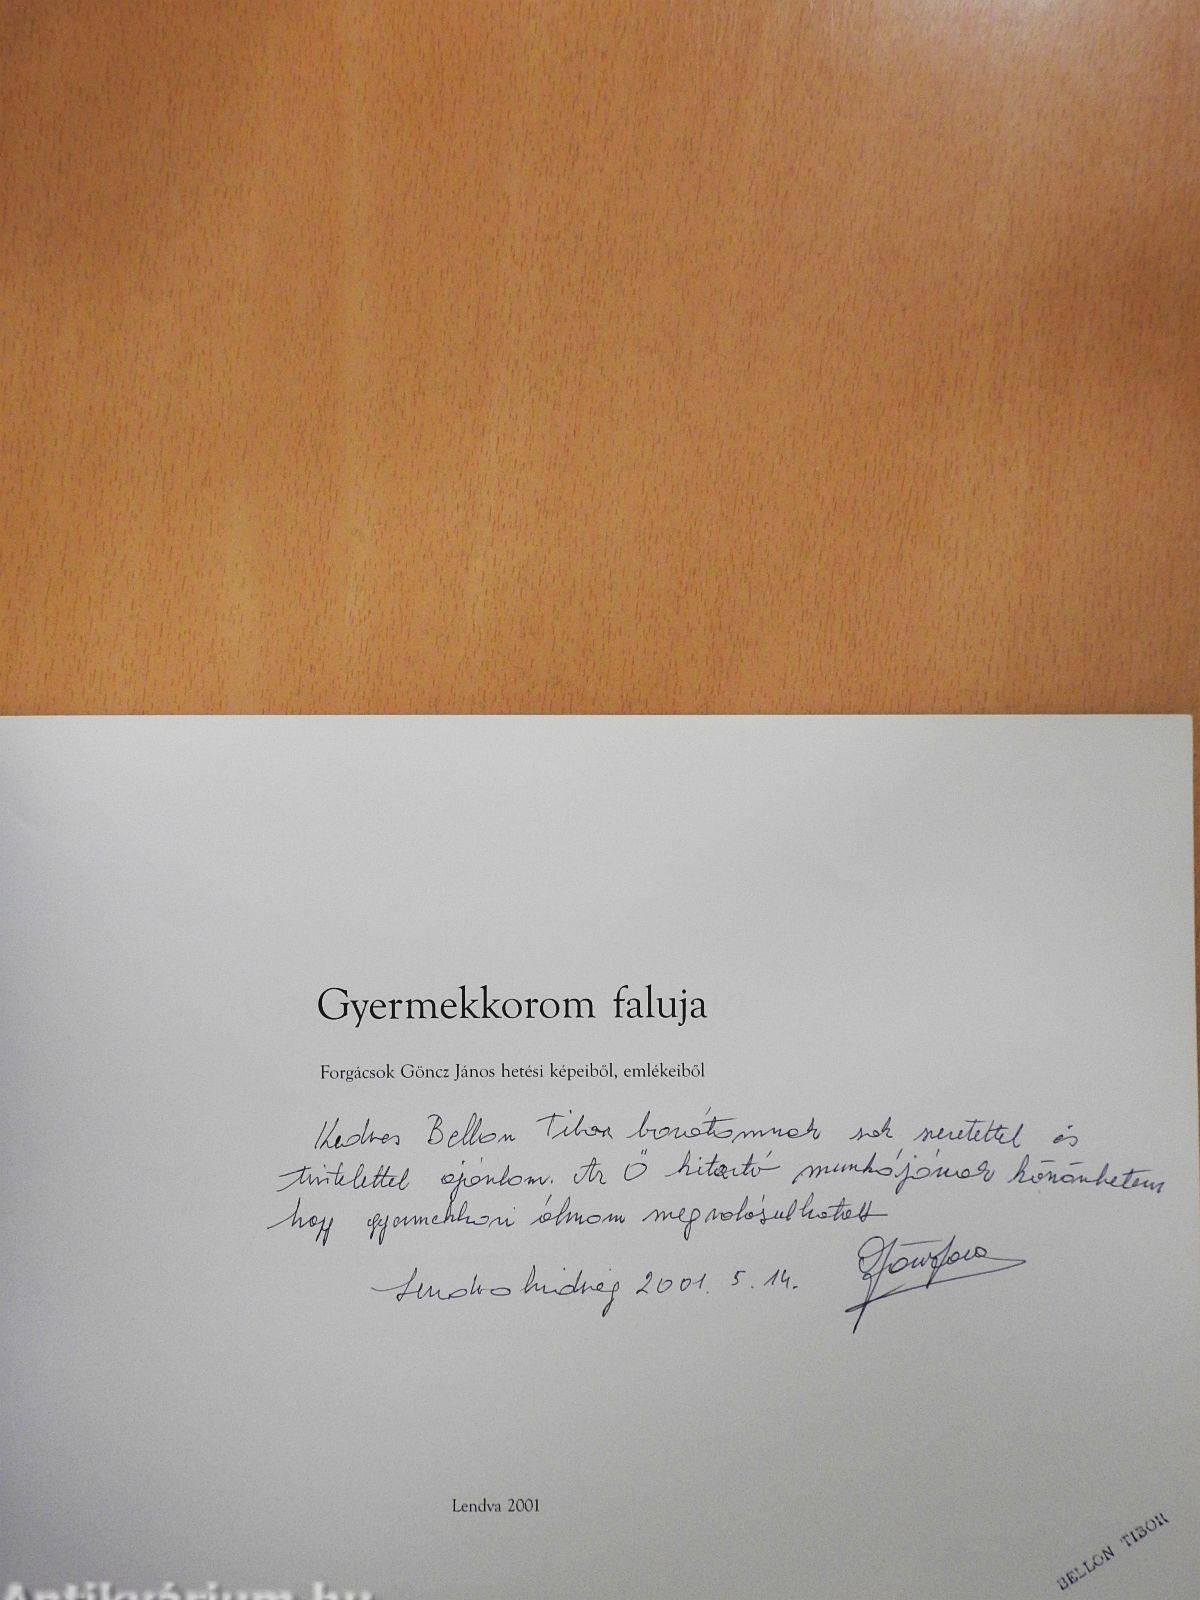 Gyermekkorom faluja
Forgácsok Göncz János hetési képeiből, emlékeiből
Kedves Bellon Tibor barátomnak sok szeretettel és
tisztelettel ajánlom. Az Ő kitartó munkájának köszönhetem
hogy gyermekkori álmom megvalósulhatott
Lendvahídvég 2001. 5. 14.
Lendva 2001
BELLON TIBOR
Antikvárium.hu